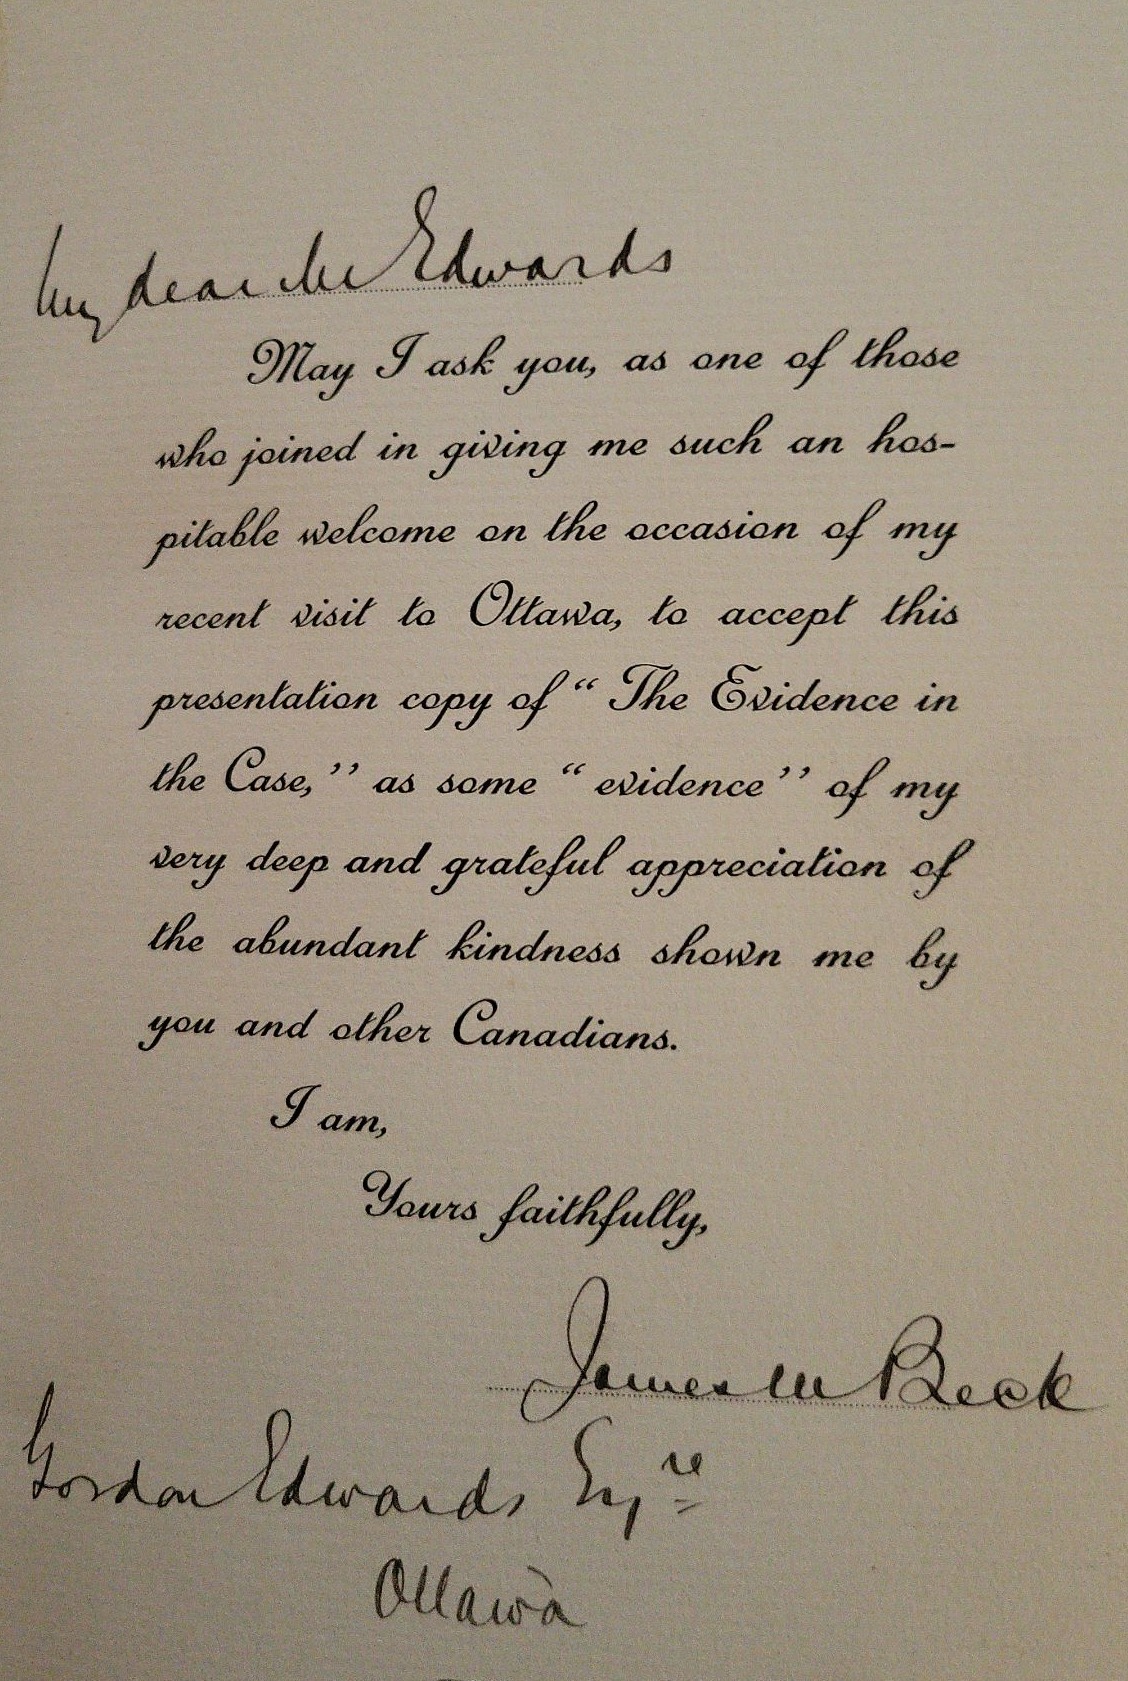 My dear Mr Edwards
May I ask you, as one of those
who joined in giving me such an hos-
pitable welcome on the occasion of my
recent visit to Ottawa, to accept this
presentation copy of “ The Evidence in
the Case,’’ as some “ evidence’’ of my
very deep and grateful appreciation of
the abundant kindness shown me by
you and other Canadians.
I am,
Yours faithfully,
James M Beck
Gordon Edwards Esqre
Ottawa